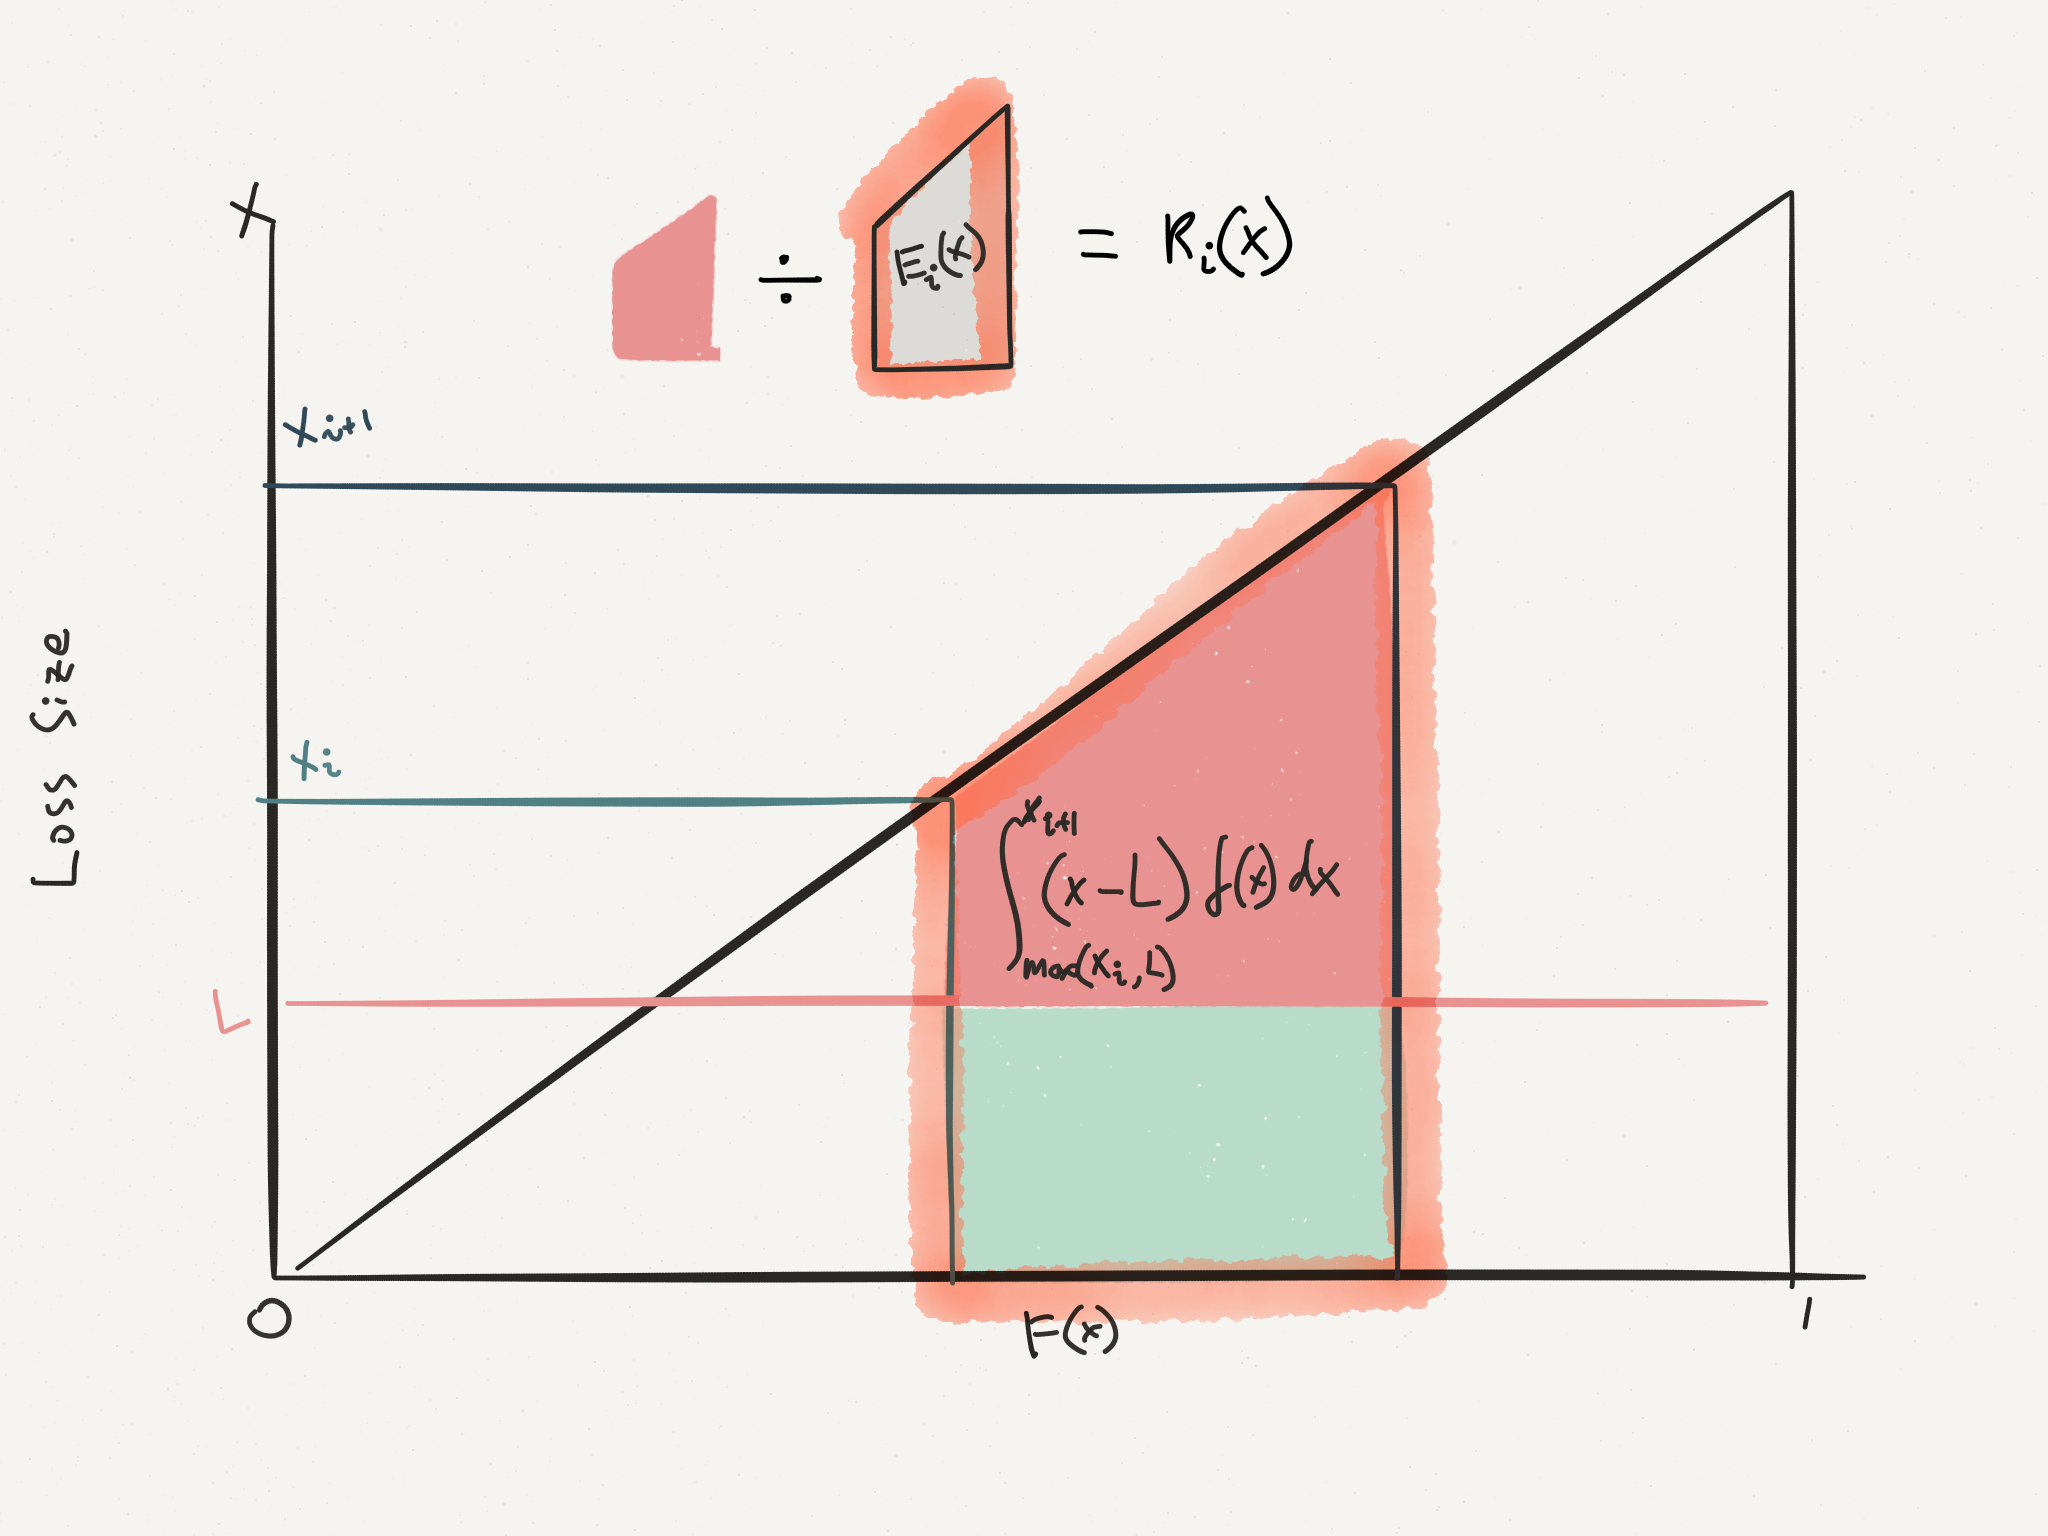 x
÷ E_i(x) = R_i(x)
x_{i+1}
Loss Size
x_i
∫_{max(x_i, L)}^{x_{i+1}} (x - L) f(x) dx
L
0
F(x)
1